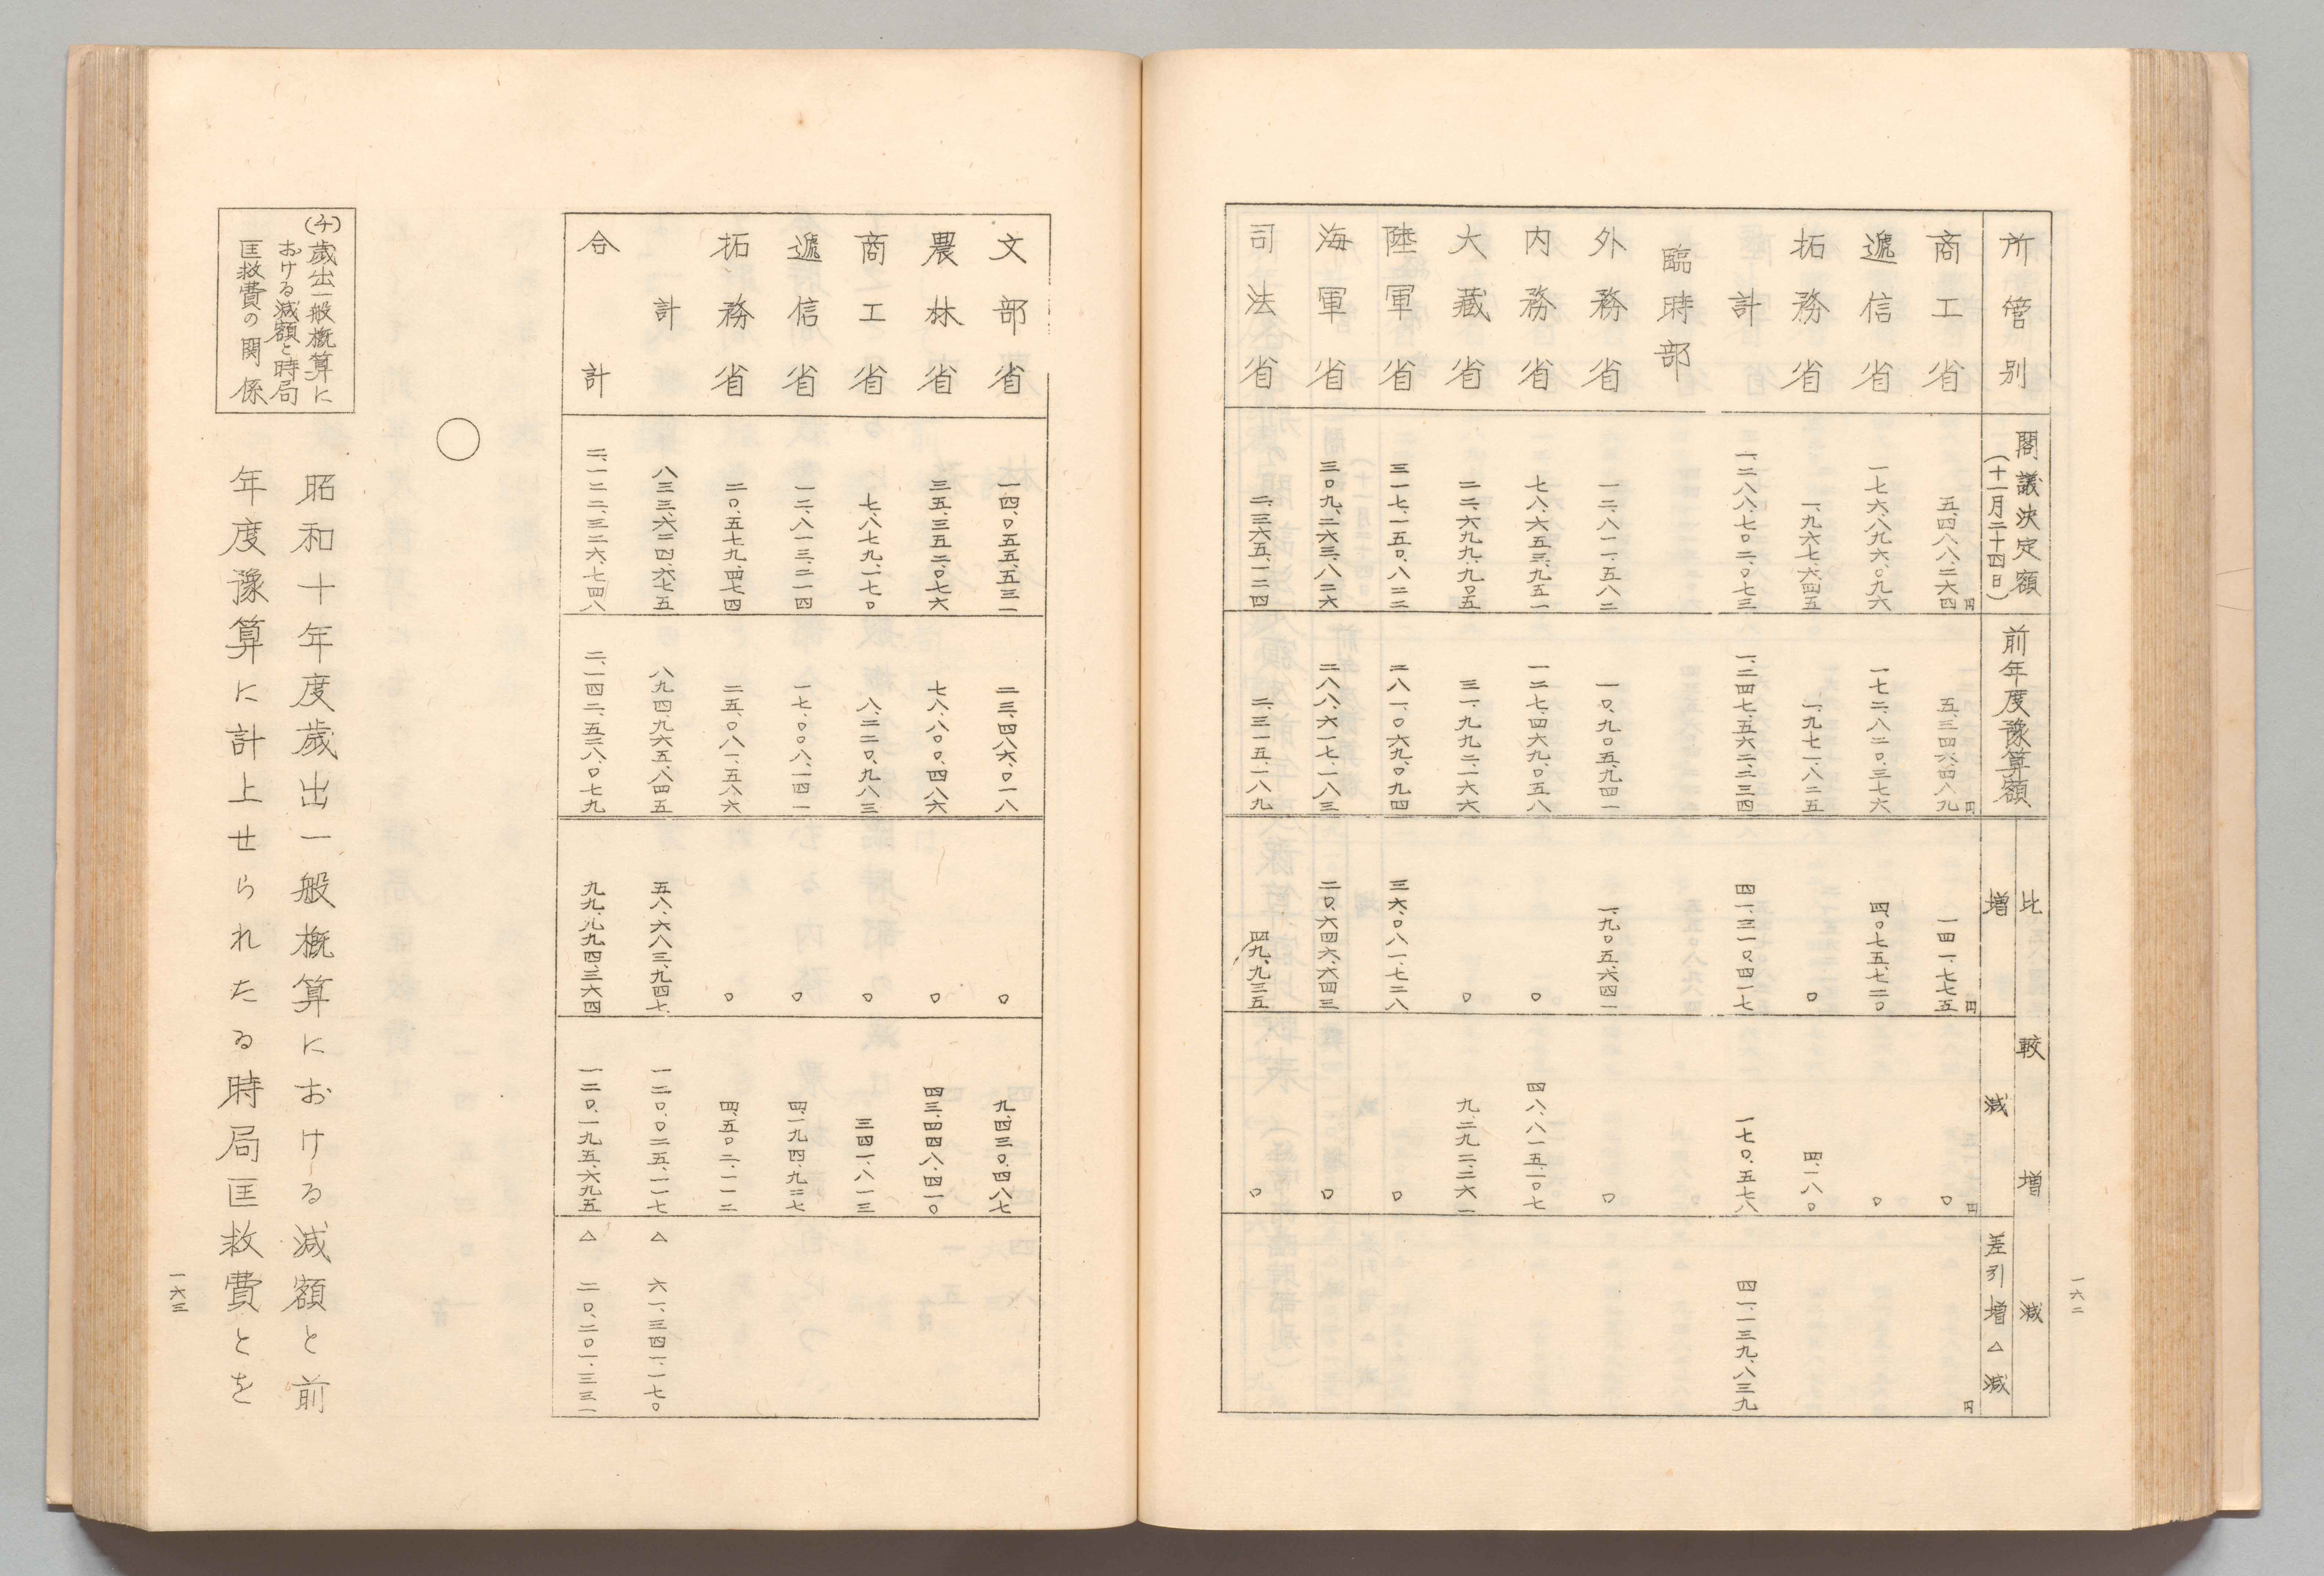 一六二
所管別 閣議決定額(十一月二十四日) 前年度豫算額 比較増減
増 減 差引増△減
商工省 五、四八八、二六四円 五、三四六、四八九円 一四一、七七五円 〇円 円
遞信省 一七六、八九六、〇九六 一七二、八二〇、三七六 四、〇七五、七二〇 〇
拓務省 一、九六七、六四五 一、九七一、八二五 〇 四、一八〇
計 一、二八八、七〇二、〇七三 一、二四七、五六二、二三四 四一、三一〇、四一七 一七〇、五七八 四一、一三九、八三九
臨時部
外務省 一二、八一一、五八二 一〇、九〇五、九四一 一、九〇五、六四一 〇
内務省 七八、六五三、九五一 一二七、四六九、〇五八 〇 四八、八一五、一〇七
大藏省 二二、六九九、九〇五 三一、九九二、一六六 〇 九、二九二、二六一
陸軍省 三一七、一五〇、八二二 二八一、〇六九、〇九四 三六、〇八一、七二八 〇
海軍省 三〇九、二六三、八二六 二八八、六一七、一八三 二〇、六四六、六四三 〇
司法省 二、三六五、一二四 二、三一五、一八九 四九、九三五 〇
文部省 一四、〇五五、五三一 二三、四八六、〇一八 〇 九、四三〇、四八七
農林省 三五、三五二、〇七六 七八、八〇〇、四八六 〇 四三、四四八、四一〇
商工省 七、八七九、一七〇 八、二二〇、九八三 〇 三四一、八一三
遞信省 一二、八一三、二一四 一七、〇〇八、一四一 〇 四、一九四、九二七
拓務省 二〇、五七九、四七四 二五、〇八一、五八六 〇 四、五〇二、一一二
計 八三三、六二四、六七五 八九四、九六五、八四五 五八、六八三、九四七 一二〇、〇二五、一一七 △ 六一、三四一、一七〇
合計 二、一二二、三二六、七四八 二、一四二、五二八、〇七九 九九、九九四、三六四 一二〇、一九五、六九五 △ 二〇、二〇一、三三一
○
(チ)歳出一般概算に
おける減額と時局
匡救費の関係
昭和十年度歳出一般概算における減額と前
年度豫算に計上せられたる時局匡救費とを
一六三